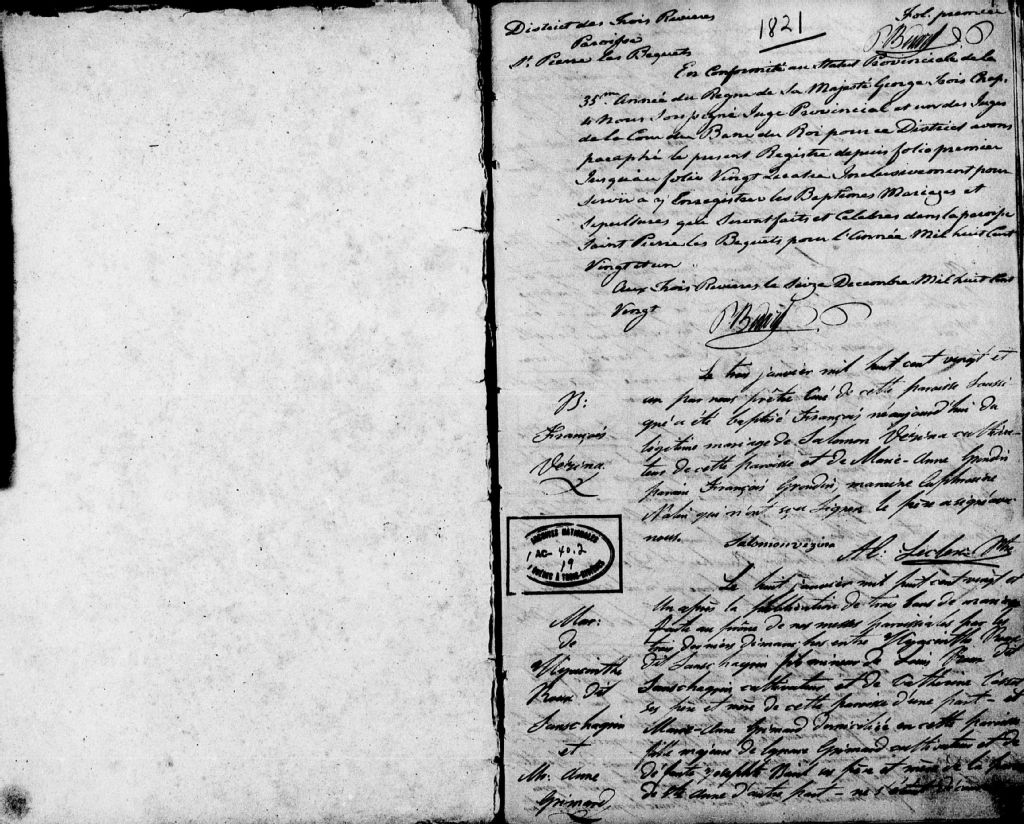 District des Trois Rivieres
Paroisse
St. Pierre les Bequets
1821
Fol. premier
PBedard
En Conformité au Statut Provinciale de la
35me. Année du Regne de Sa Majesté George Trois Chap.
4 Nous Soussigné Juge Provincial et un des Juges
de la Cour du Banc du Roi pour ce District avons
paraphé le present Registre depuis folio premier
Jusqu'au folio Vingt Inclusivement pour
Servir a y Enregistrer les Baptêmes Mariages et
Sepultures qui Seront faits et Celebrés dans la paroisse
Saint Pierre les Bequets pour l'Année Mil huit Cent
Vingt et un
Aux Trois Rivieres le Seize Decembre Mil huit Cent
Vingt
PBedard
B:
François
Vézina
Le trois janvier mil huit cent vingt et
un par nous prêtre Curé de cette paroisse Soussi
gné a été baptisé François né aujourd'hui du
légitime mariage de Salomon Vézina cultiva-
teur de cette paroisse et de Marie-Anne Grondin
parain François Grondin, maraine
qui n'ont sçu Signer le père a signé avec
nous.
Salomon vezina
Al: Leclerc Ptre
ARCHIVES NATIONALES
AC- 40.2
19
QUÉBEC À TROIS-RIVIÈRES
Mar:
de
Hyacinthe
Roux dit
Sanschagrin
et
M. Anne
Grimard
Le huit janvier mil huit cent vingt et
Un après la publication de trois bans de mariage
faite au prône de nos messes paroissiales par
trois derniers dimanches entre Hyacinthe Roux
dit Sanschagrin fils mineur de Louis Roux dit
Sanschagrin cultivateur et de Catherine
ses père et mère de cette paroisse d'une part - et
Marie-Anne Grimard domiciliée en cette paroisse
fille majeure de Ignace Grimard cultivateur et de
défunte Josephte ses père et mère de la paroisse
de Ste Anne d'autre part - ne s'étant